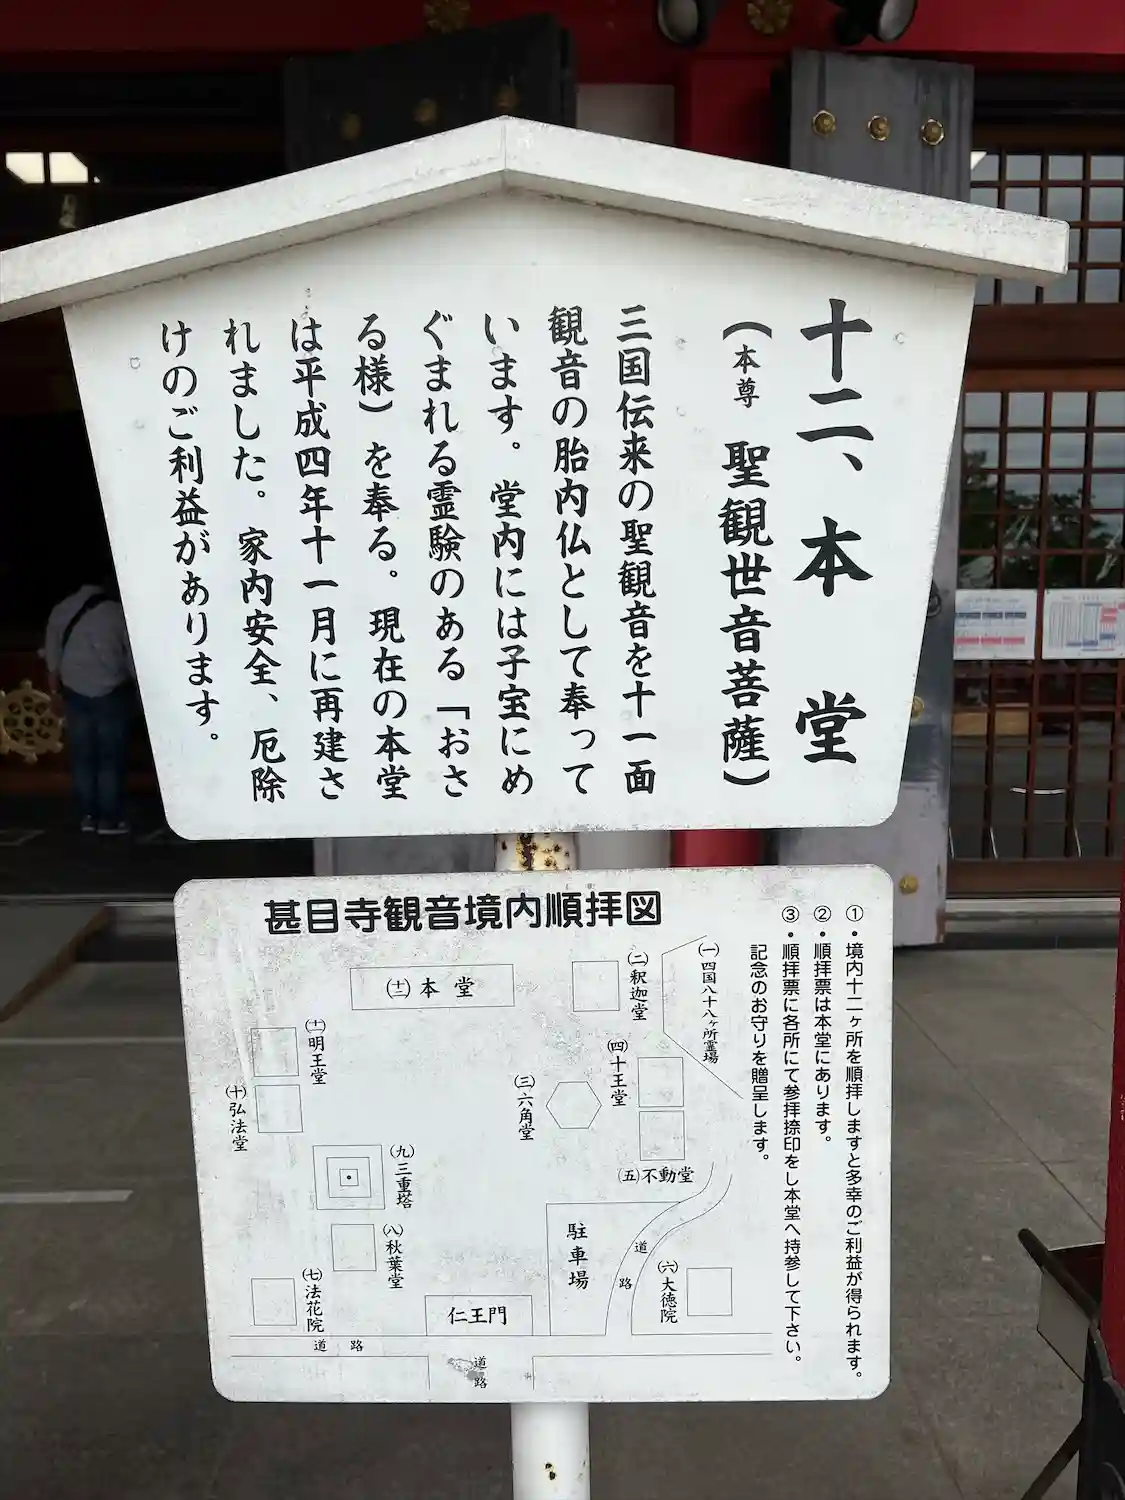 十二、本堂
（本尊 聖観世音菩薩）
三国伝来の聖観音を十一面
観音の胎内仏として奉って
います。堂内には子宝にめ
ぐまれる霊験のある「おさ
る様）を奉る。現在の本堂
は平成四年十一月に再建さ
れました。家内安全、厄除
けのご利益があります。
甚目寺観音境内順拝図
①・境内十二ヶ所を順拝しますと多幸のご利益が得られます。
②・順拝票は本堂にあります。
③・順拝票に各所にて参拝捺印をし本堂へ持参して下さい。
記念のお守りを贈呈します。
(一)四国八十八ヶ所霊場
(二)釈迦堂
(十二)本堂
(四)十王堂
(三)六角堂
(十一)明王堂
(十)弘法堂
(五)不動堂
(九)三重塔
(八)秋葉堂
駐車場
道路
(六)大徳院
(七)法花院
仁王門
道路
道路